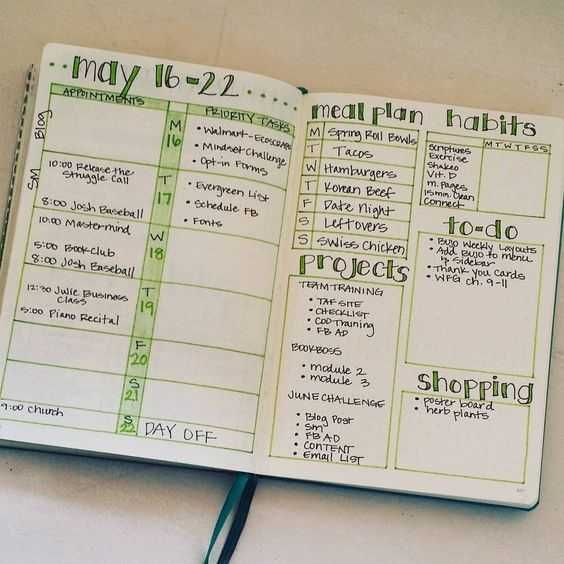 may 16-22
APPOINTMENTS
PRIORITY TASKS
Blog
M
16
• Walmart-Ecoscraps
• Mindset Challenge
• Opt-in Forms
SM
10:00 Release the
Struggle Call
8:00 Josh Baseball
T
17
• Evergreen List
• Schedule FB
• Fonts
10:00 Mastermind
5:00 Bookclub
8:00 Josh Baseball
W
18
12:30 Julie Business
Class
5:00 Piano Recital
T
19
F
20
S
21
9:00 Church
S
22
DAY OFF
meal plan
M Spring Roll Bowls
T Tacos
W Hamburgers
T Korean Beef
F Date Night
S Leftovers
S Swiss Chicken
projects
TEAM TRAINING
• TAF SITE
• CHECKLIST
• COD Training
• FB AD
BOOKBOSS
• module 2
• module 3
JUNE CHALLENGE
• Blog Post
• Sm
• FB AD
• CONTENT
• Email LIST
habits
M T W T F S S
Scriptures
Exercise
Shakeo
Vit. D
m. Pages
15 min. Clean
Connect
to-do
• Bujo Weekly Layouts
• Add Bujo to menu
& Sidebar
• Thank you Cards
• WFG ch. 9-11
shopping
• poster board
• herb plants